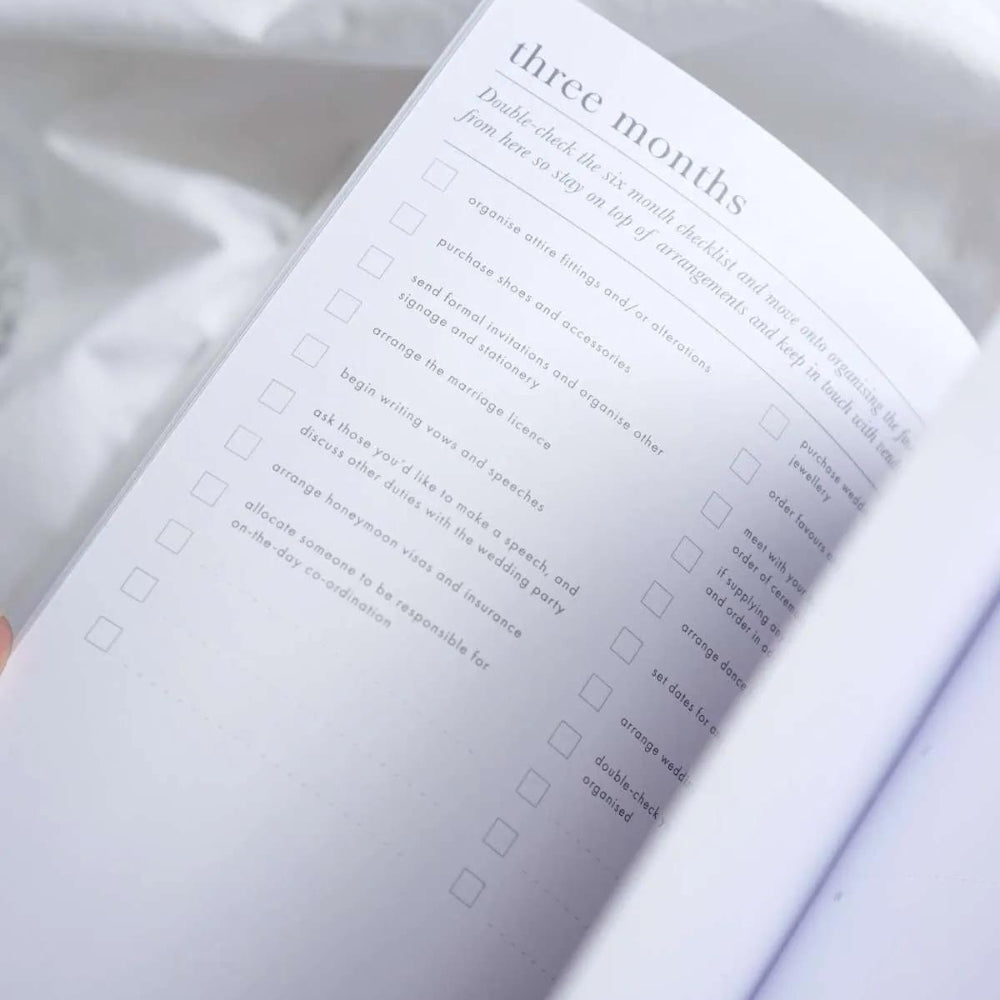 three months
Double-check the six month checklist and move onto organising the
from here so stay on top of arrangements and keep in touch with
organise attire fittings and/or alterations
purchase shoes and accessories
send formal invitations and organise other
signage and stationery
arrange the marriage licence
begin writing vows and speeches
ask those you'd like to make a speech, and
discuss other duties with the wedding party
arrange honeymoon visas and insurance
allocate someone to be responsible for
on-the-day co-ordination
purchase
jewellery
order favours
meet with your
order of
if supplying
and order in
arrange dance
set dates for
arrange
double-check
organised